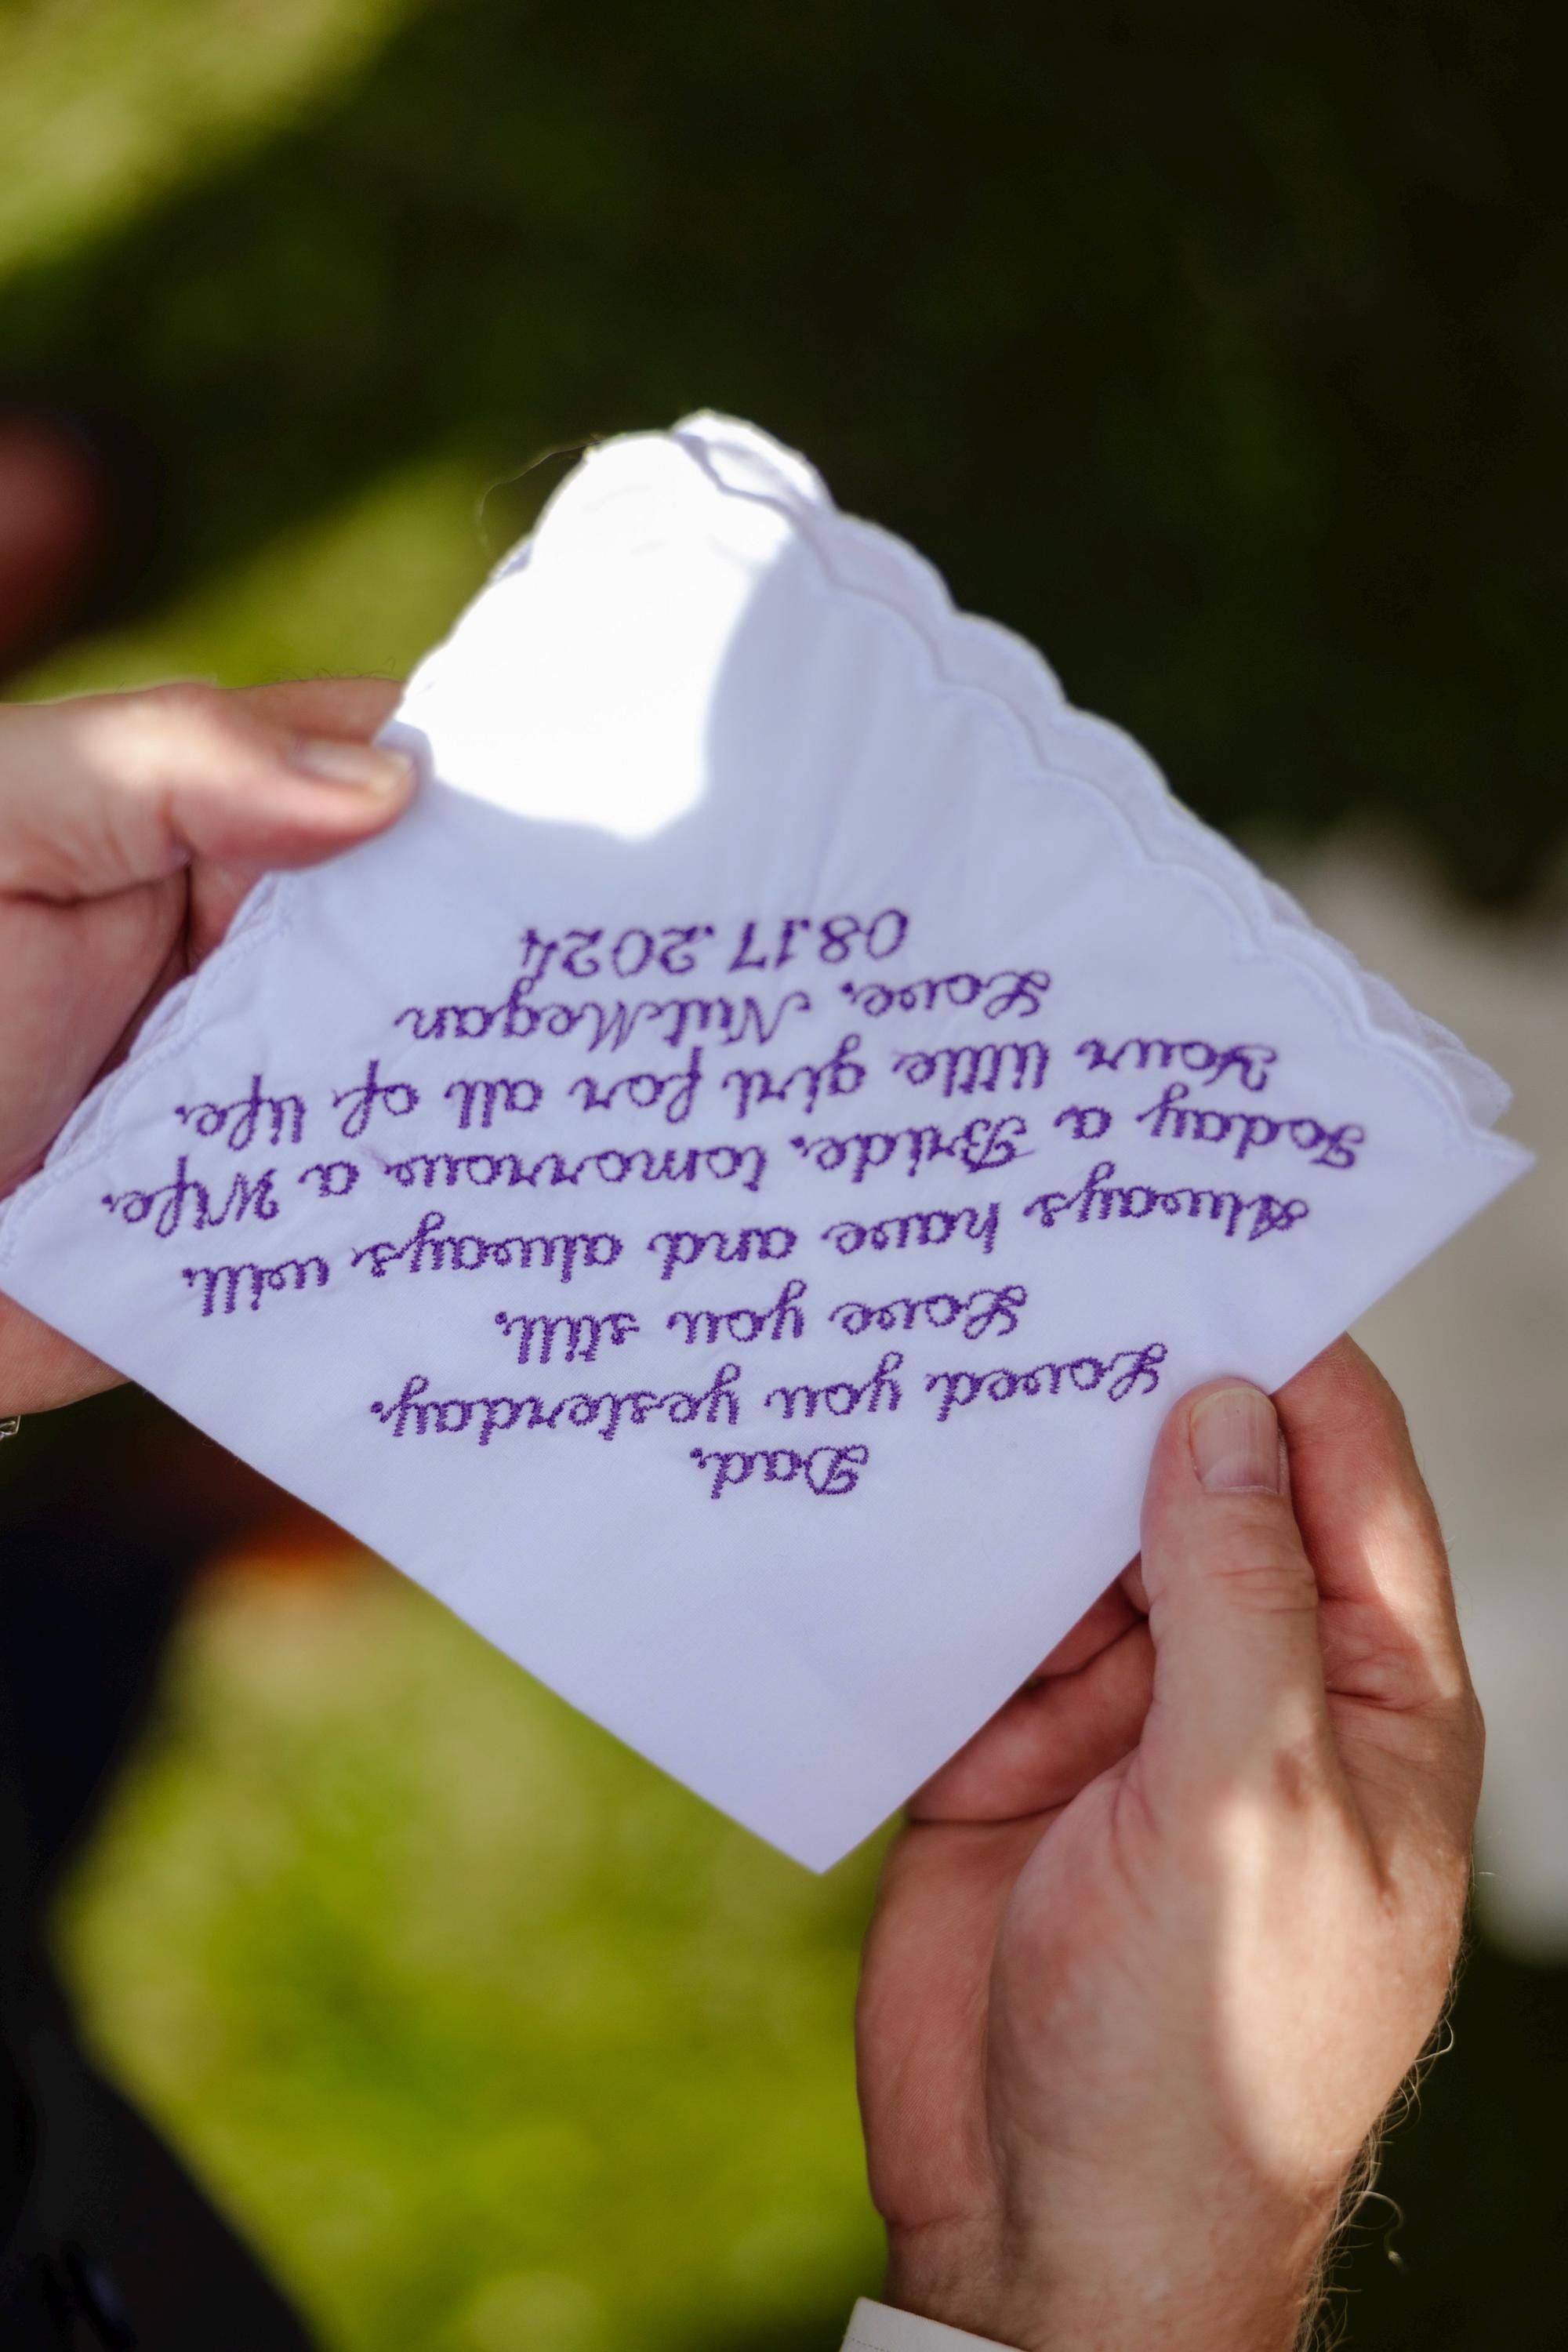 Dad,
Loved you yesterday.
Love you still.
Always have and always will.
Today a Bride, tomorrow a Wife,
Your little girl for all of life.
Love, NutMegan
08.17.2024